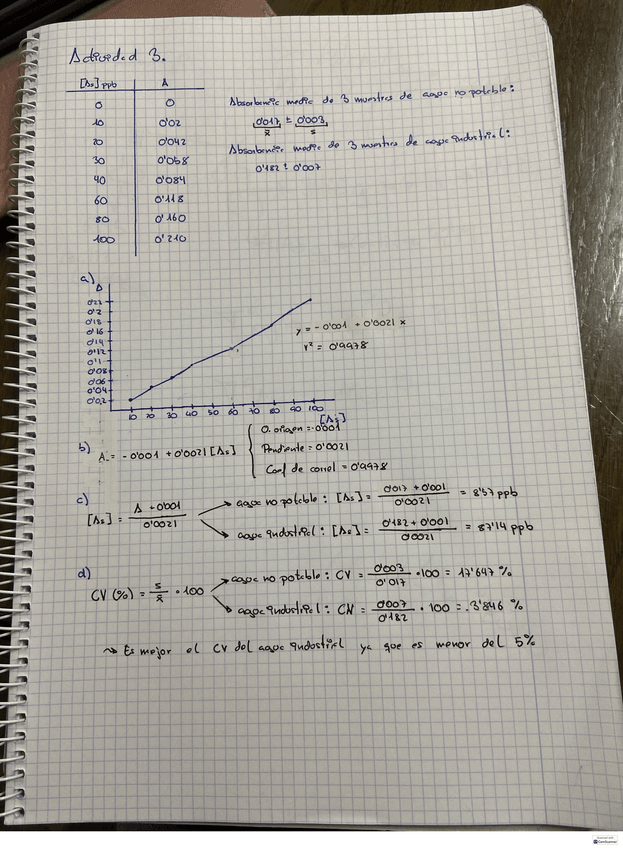 Actividad 3.
[As] ppb A
0 0
10 0'02
20 0'042
30 0'058
40 0'084
60 0'118
80 0'160
100 0'210
Absorbancia media de 3 muestras de agua no potable:
0'017 ± 0'003
x̄ s
Absorbancia media de 3 muestras de agua industrial:
0'182 ± 0'007
a)
A
0'22
0'2
0'18
0'16
0'14
0'12
0'1
0'08
0'06
0'04
0'0,2
10 20 30 40 50 60 70 80 90 100
[As]
y = -0'001 + 0'0021 x
r² = 0'9978
b) A = -0'001 + 0'0021 [As]
O. origen = -0'001
Pendiente = 0'0021
Coef de correl = 0'9978
c)
[As] = A + 0'001 / 0'0021
agua no potable : [As] = 0'017 + 0'001 / 0'0021 = 8'57 ppb
agua industrial : [As] = 0'182 + 0'001 / 0'0021 = 87'14 ppb
d)
CV (%) = s / x̄ · 100
agua no potable : CV = 0'003 / 0'017 · 100 = 17'647 %
agua industrial : CV = 0'007 / 0'182 · 100 = 3'846 %
⇝ Es mejor el CV del agua industrial ya que es menor del 5%
CamScanner